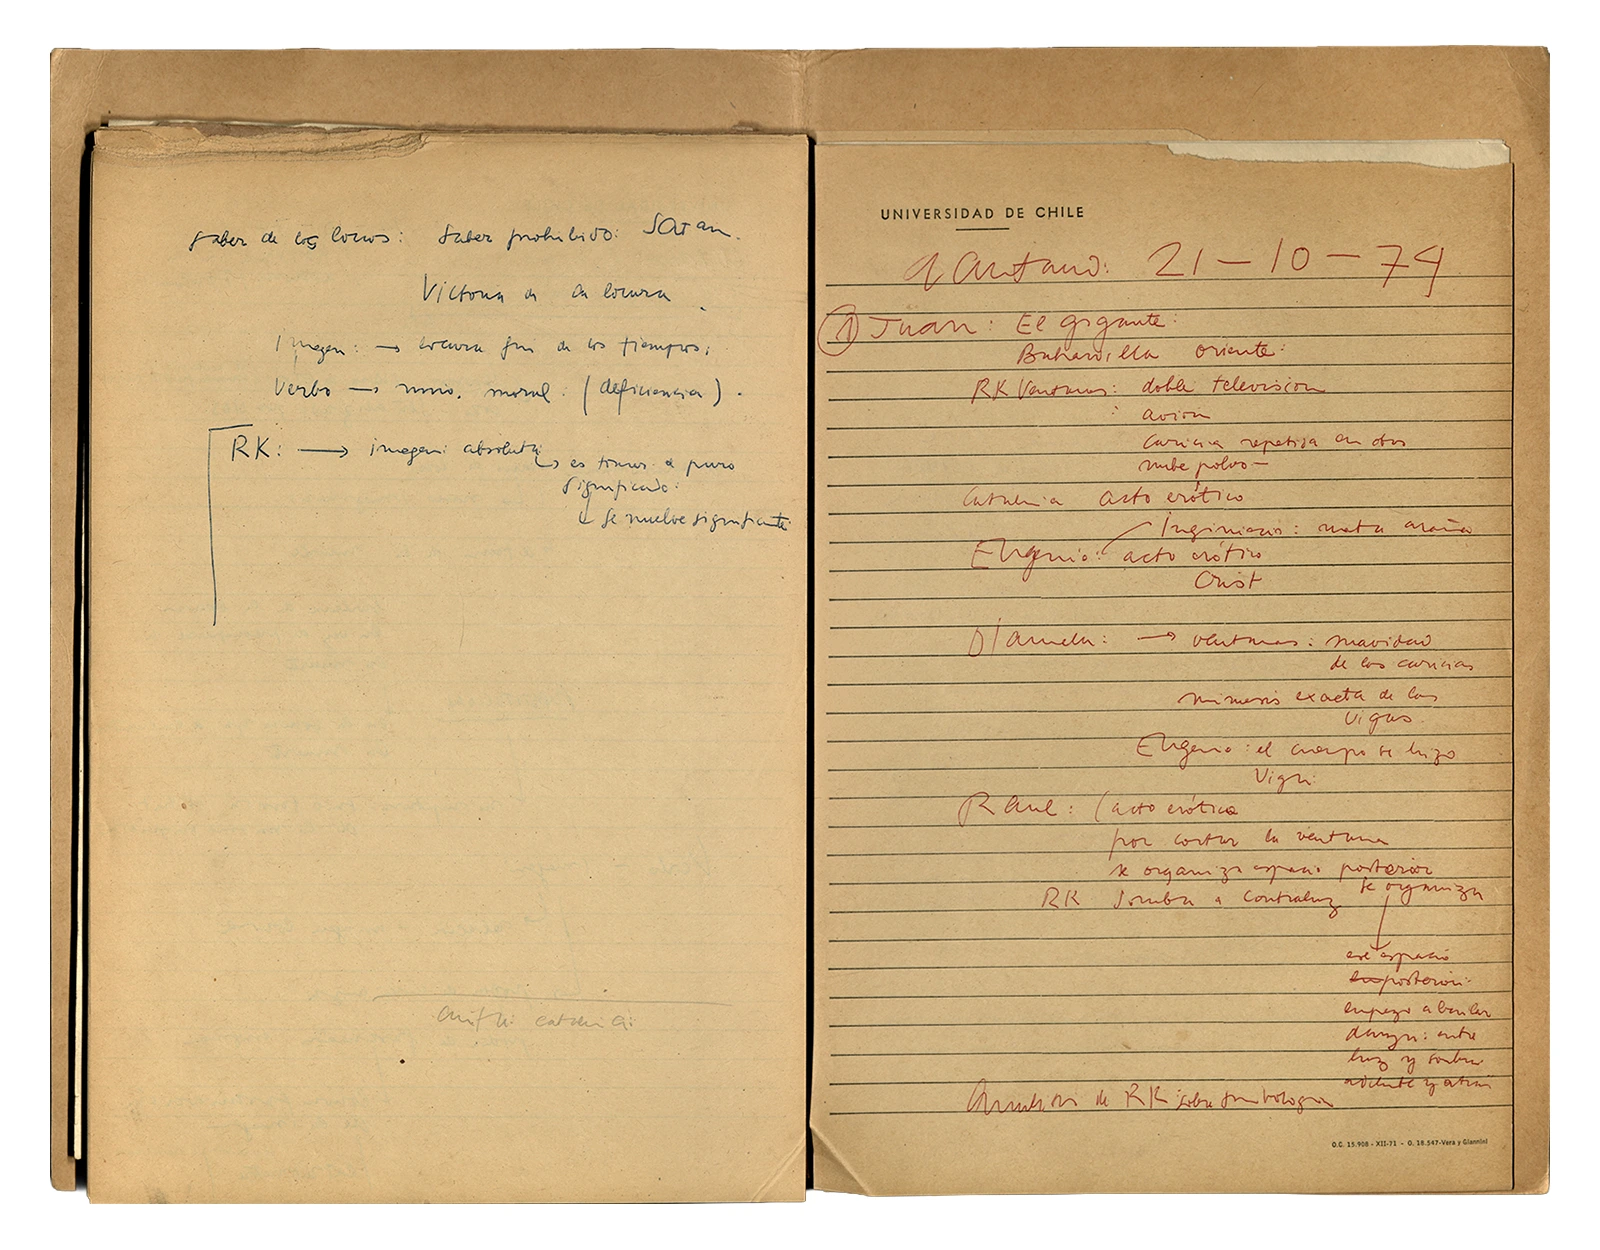 saber de los locos: saber prohibido: Satan.
Victoria de la locura
Imagen: → locura fin de los tiempos:
Verbo → moral: (deficiencia).
RK: → imagen absoluta:
↳ es a puro
significado:
↳ se vuelve significante
UNIVERSIDAD DE CHILE
21-10-74
① Juan: El gigante:
Buhardilla oriente:
RK Ventanas: doble television
avión
caricia repetida en
nube polvo-
acto erótico
mata araña
Eugenio: acto erótico
Crist
Diamela: → ventanas: suavidad
de las caricias
mimesis exacta de las
vigas.
Eugenio: el cuerpo se hizo
viga:
Raul: (acto erótico
por cortar la ventana
se organiza espacio posterior
se organiza
RK Sombra a contraluz
ese espacio
posterior:
empezo a bailar
danza: entre
luz y sombra
adelante y atrás
de RK sobre simbologia
O.C. 15.908 - XII-71 - O. 18.547-Vera y Giannini